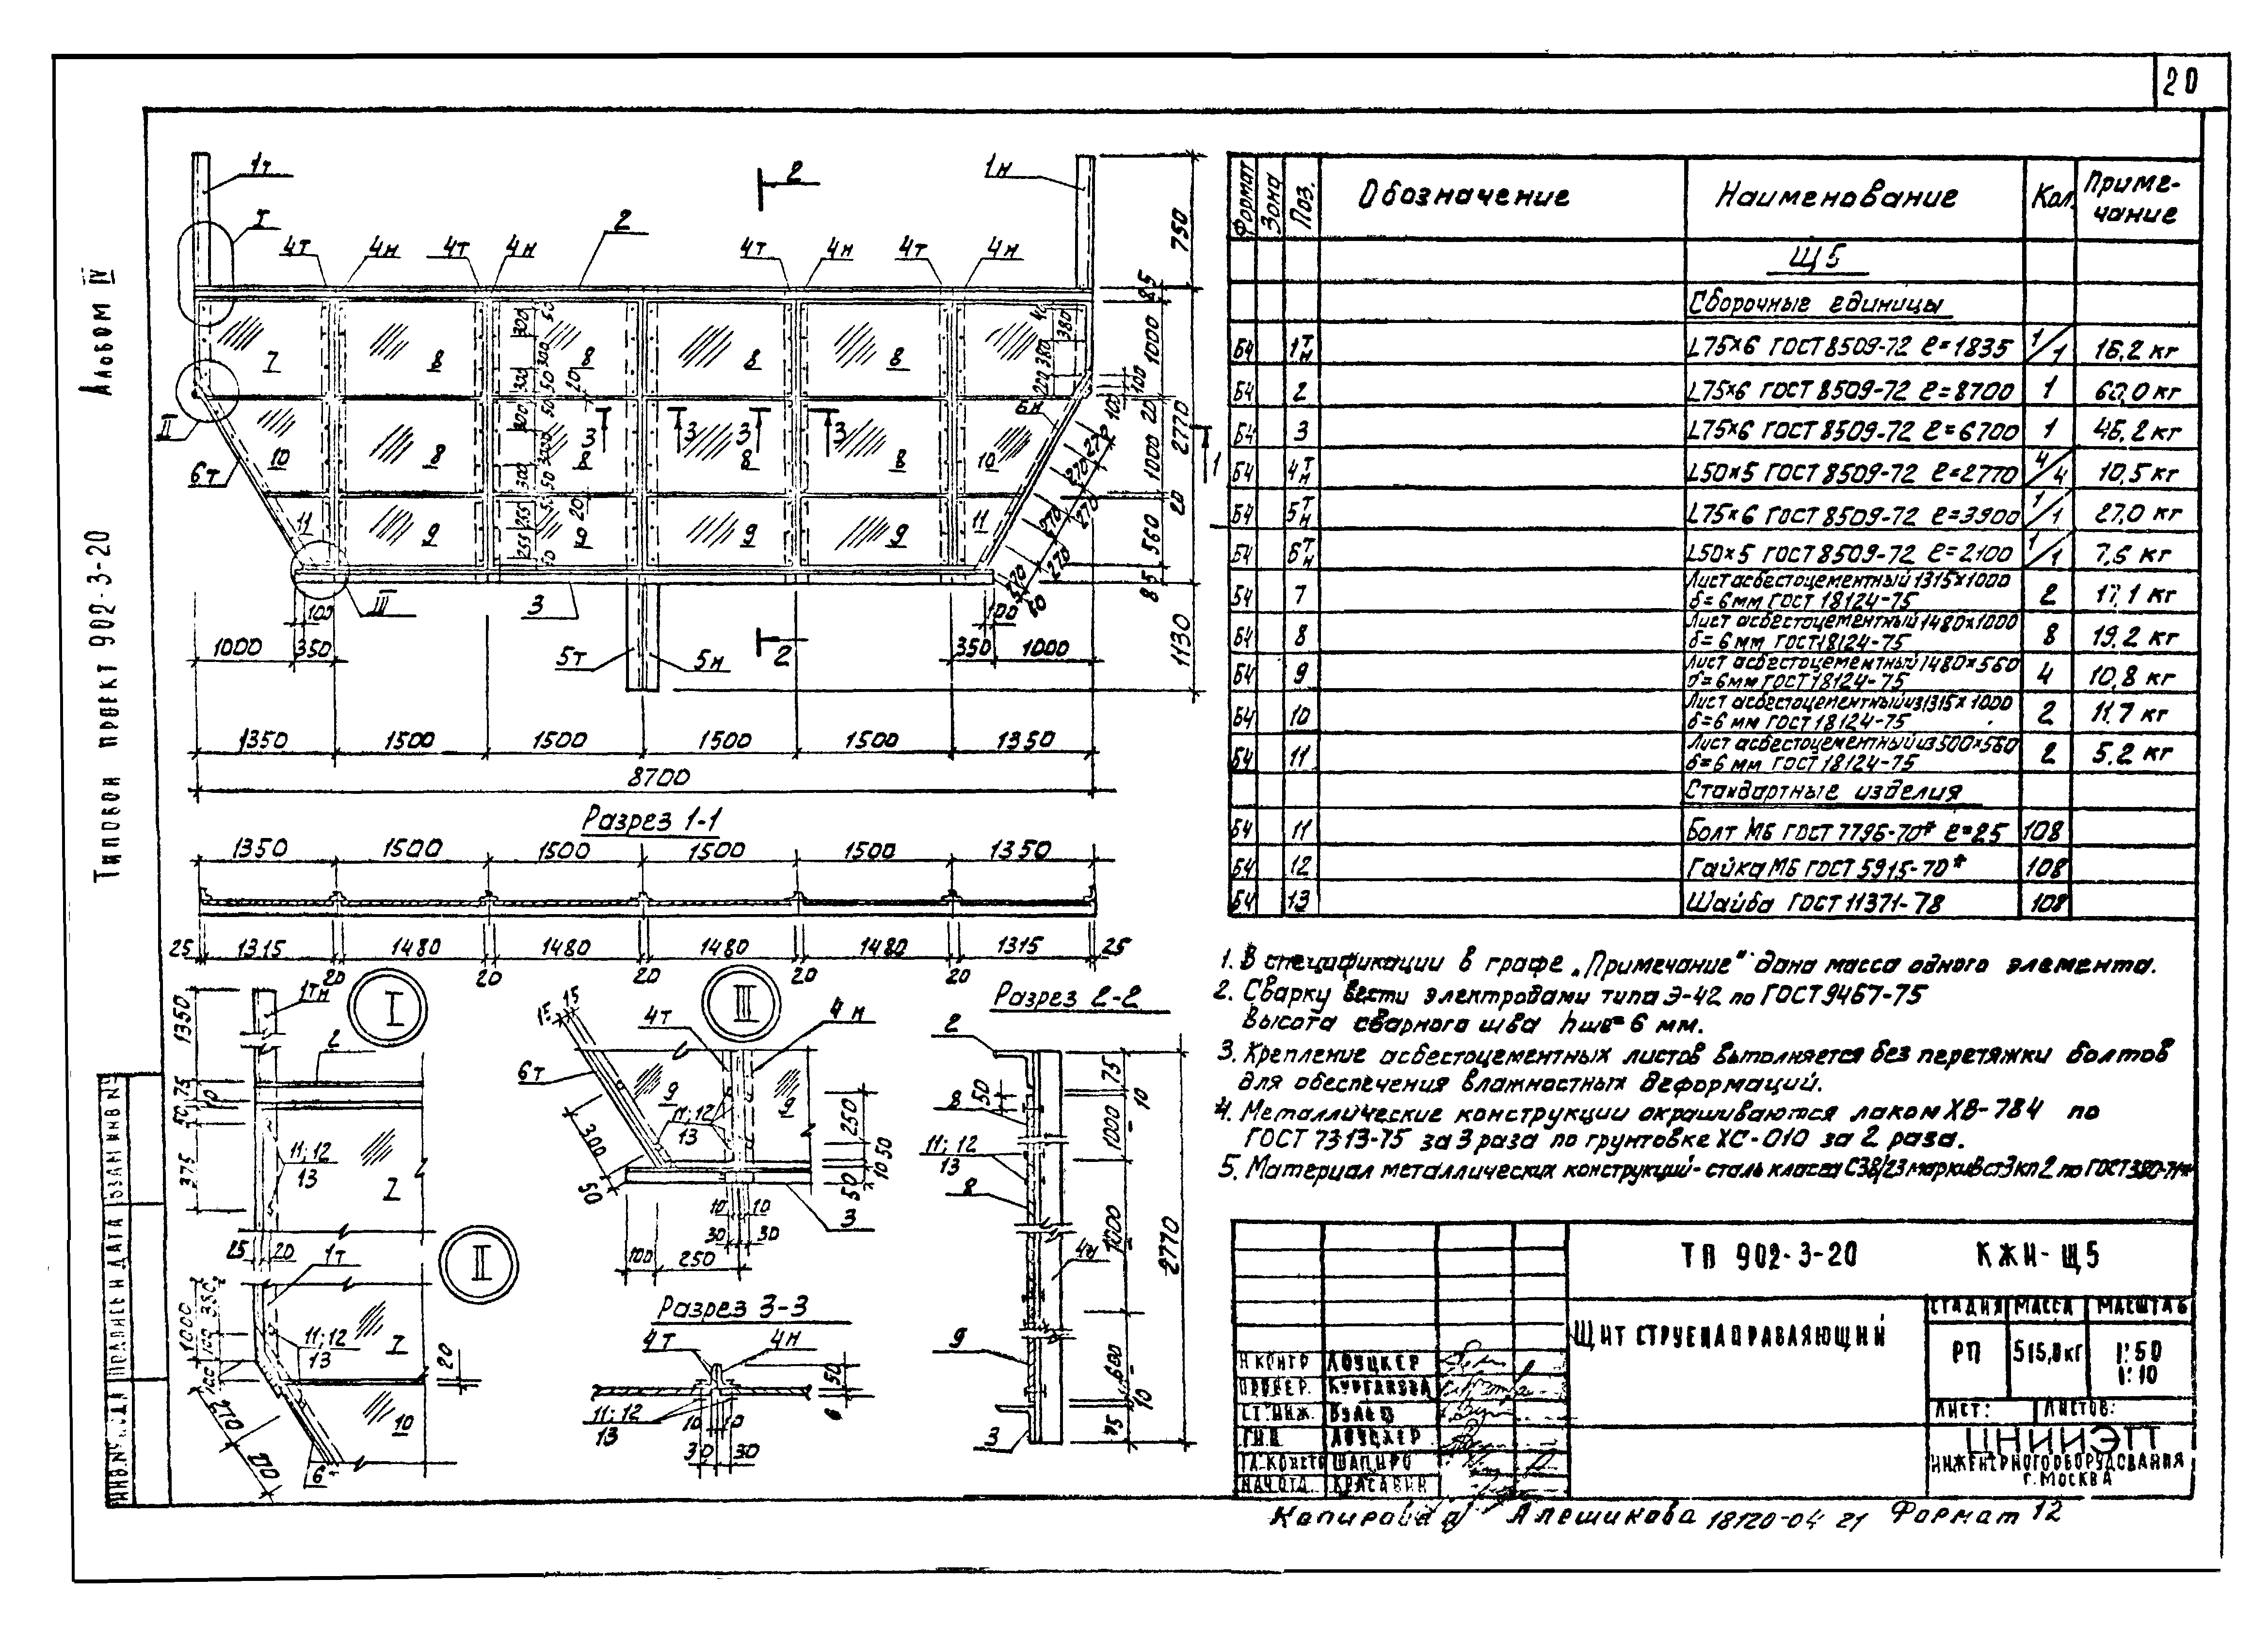 20
Альбом IV
Типовой проект 902-3-20
1т
1н
2
I
2
4т 4н 4т 4н 4т 4н 4т 4н
750
85
1000
20
2770
1000
20
560
85
1130
7 8 8 8 8
10 8 8 8 8 10
11 9 9 9 9 11
II
6т
6н
III
3
5т 5н
2
1
100
1000 350
350 1000
1350 1500 1500 1500 1500 1350
8700
Разрез 1-1
1350 1500 1500 1500 1500 1350
25 1315 1480 1480 1480 1480 1315 25
20 20 20 20 20
I
1тн
2
1350
75
50
10
375
11; 12
13
7
25 20
II
1т
1000
350
100
11; 12
13
7
20
10
270
6
III
15
4т 4н
6т
9 9
11; 12
13
300
50
250
50
10
50
10 10
30 30
3
100 250
Разрез 3-3
4т 4н
11; 12
13
10 10
30 30
50
6
Разрез 2-2
2
50
8
11; 12
13
8
4н
9
3
75
10
1000
1000
10
75
2770
Формат
Зона
Поз.
Обозначение
Наименование
Кол.
Приме-
чание
Щ5
Сборочные единицы
Б4 1 т/н L75×6 ГОСТ 8509-72 ℓ=1835 1/1 16,2 кг
Б4 2 L75×6 ГОСТ 8509-72 ℓ=8700 1 60,0 кг
Б4 3 L75×6 ГОСТ 8509-72 ℓ=6700 1 46,2 кг
Б4 4 т/н L50×5 ГОСТ 8509-72 ℓ=2770 4/4 10,5 кг
Б4 5 т/н L75×6 ГОСТ 8509-72 ℓ=3900 1/1 27,0 кг
Б4 6 т/н L50×5 ГОСТ 8509-72 ℓ=2100 1/1 7,6 кг
Б4 7 Лист асбестоцементный 1315×1000 δ=6мм ГОСТ 18124-75 2 17,1 кг
Б4 8 Лист асбестоцементный 1480×1000 δ=6 мм ГОСТ 18124-75 8 19,2 кг
Б4 9 Лист асбестоцементный 1480×560 δ=6мм ГОСТ 18124-75 4 10,8 кг
Б4 10 Лист асбестоцементный из 1315×1000 δ=6 мм ГОСТ 18124-75 2 11,7 кг
Б4 11 Лист асбестоцементный из 500×560 δ=6 мм ГОСТ 18124-75 2 5,2 кг
Стандартные изделия
Б4 11 Болт М6 ГОСТ 7796-70* ℓ=25 108
Б4 12 Гайка М6 ГОСТ 5915-70* 108
Б4 13 Шайба ГОСТ 11371-78 108
1. В спецификации в графе „Примечание" дана масса одного элемента.
2. Сварку вести электродами типа Э-42 по ГОСТ 9467-75
Высота сварного шва hшв=6 мм.
3. Крепление асбестоцементных листов выполняется без перетяжки болтов
для обеспечения влажностных деформаций.
4. Металлические конструкции окрашиваются лаком ХВ-784 по
ГОСТ 7313-75 за 3 раза по грунтовке ХС-010 за 2 раза.
5. Материал металлических конструкций - сталь класса С38/23 марки Вст3кп2 по ГОСТ 380-71*
ТП 902-3-20 КЖИ-Щ5
Щит струенаправляющий
Стадия Масса Масштаб
РП 515,8 кг 1:50
1:10
Лист: Листов:
ЦНИИЭП
инженерного оборудования
г. Москва
Н контр Лоуцкер
Провер. Курганова
Ст. инж.
ГИП Лоуцкер
Гл. констр Шапиро
Нач отд. Красавин
Взам инв №
Подпись и дата
Инв. № подл
Копировал Алешикова 18120-04 21 Формат 12